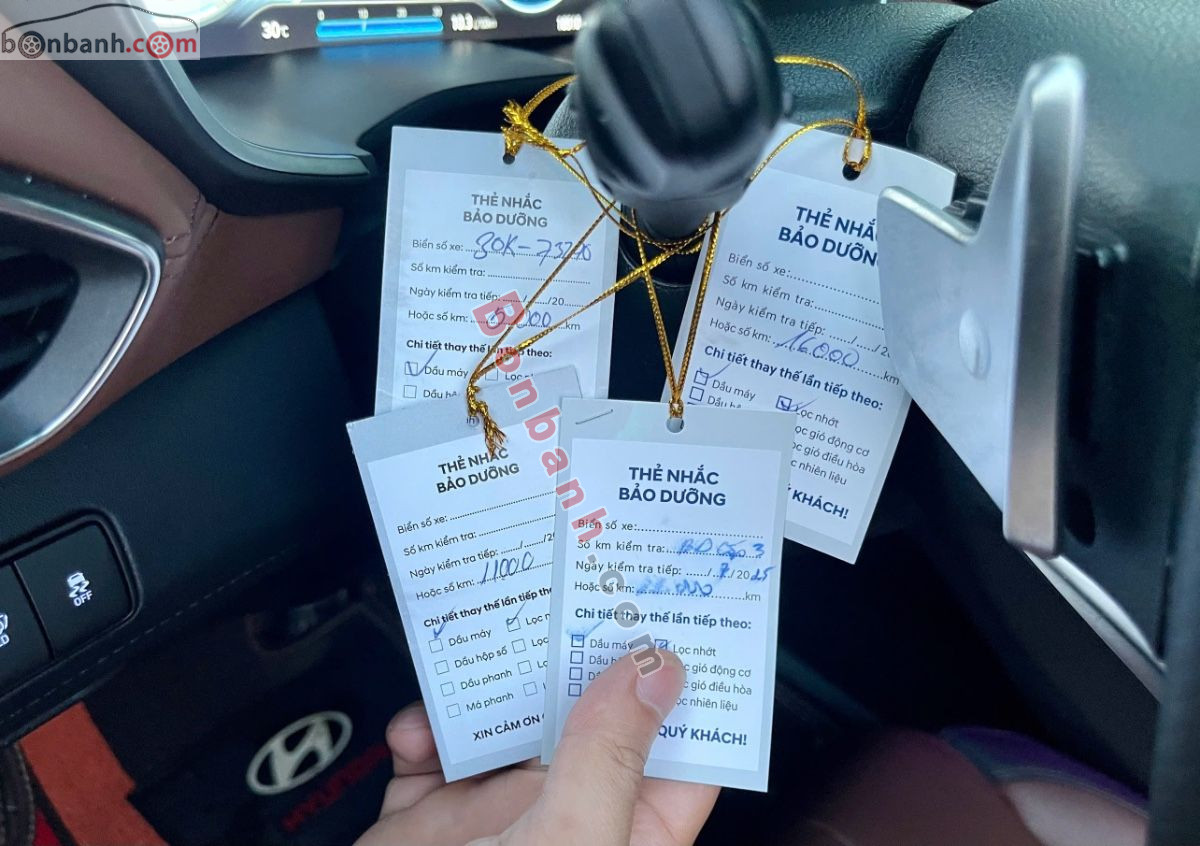 bonbanh.com
30°C
THẺ NHẮC
BẢO DƯỠNG
Biển số xe:
Số km kiểm tra:
Ngày kiểm tra tiếp: ....../....../20
Hoặc số km: 5000 km
Chi tiết thay thế lần tiếp theo:
Dầu máy
THẺ NHẮC
BẢO DƯỠNG
Biển số xe:
Số km kiểm tra:
Ngày kiểm tra tiếp: ....../....../
Hoặc số km: 16000 km
Chi tiết thay thế lần tiếp theo:
Dầu máy Lọc nhớt
Lọc gió động cơ
Lọc gió điều hòa
nhiên liệu
QUÝ KHÁCH!
THẺ NHẮC
BẢO DƯỠNG
Biển số xe:
Số km kiểm tra:
Ngày kiểm tra tiếp: ....../....../
Hoặc số km: 11000
Chi tiết thay thế lần tiếp theo:
Dầu máy Lọc
Dầu hộp số Lọc
Dầu phanh
Má phanh
XIN CẢM ƠN
THẺ NHẮC
BẢO DƯỠNG
Biển số xe:
Số km kiểm tra:
Ngày kiểm tra tiếp: ....../7/2025
Hoặc số km: km
Chi tiết thay thế lần tiếp theo:
Dầu máy Lọc nhớt
gió động cơ
gió điều hòa
nhiên liệu
QUÝ KHÁCH!
Bonbanh.com
OFF
HYUNDAI